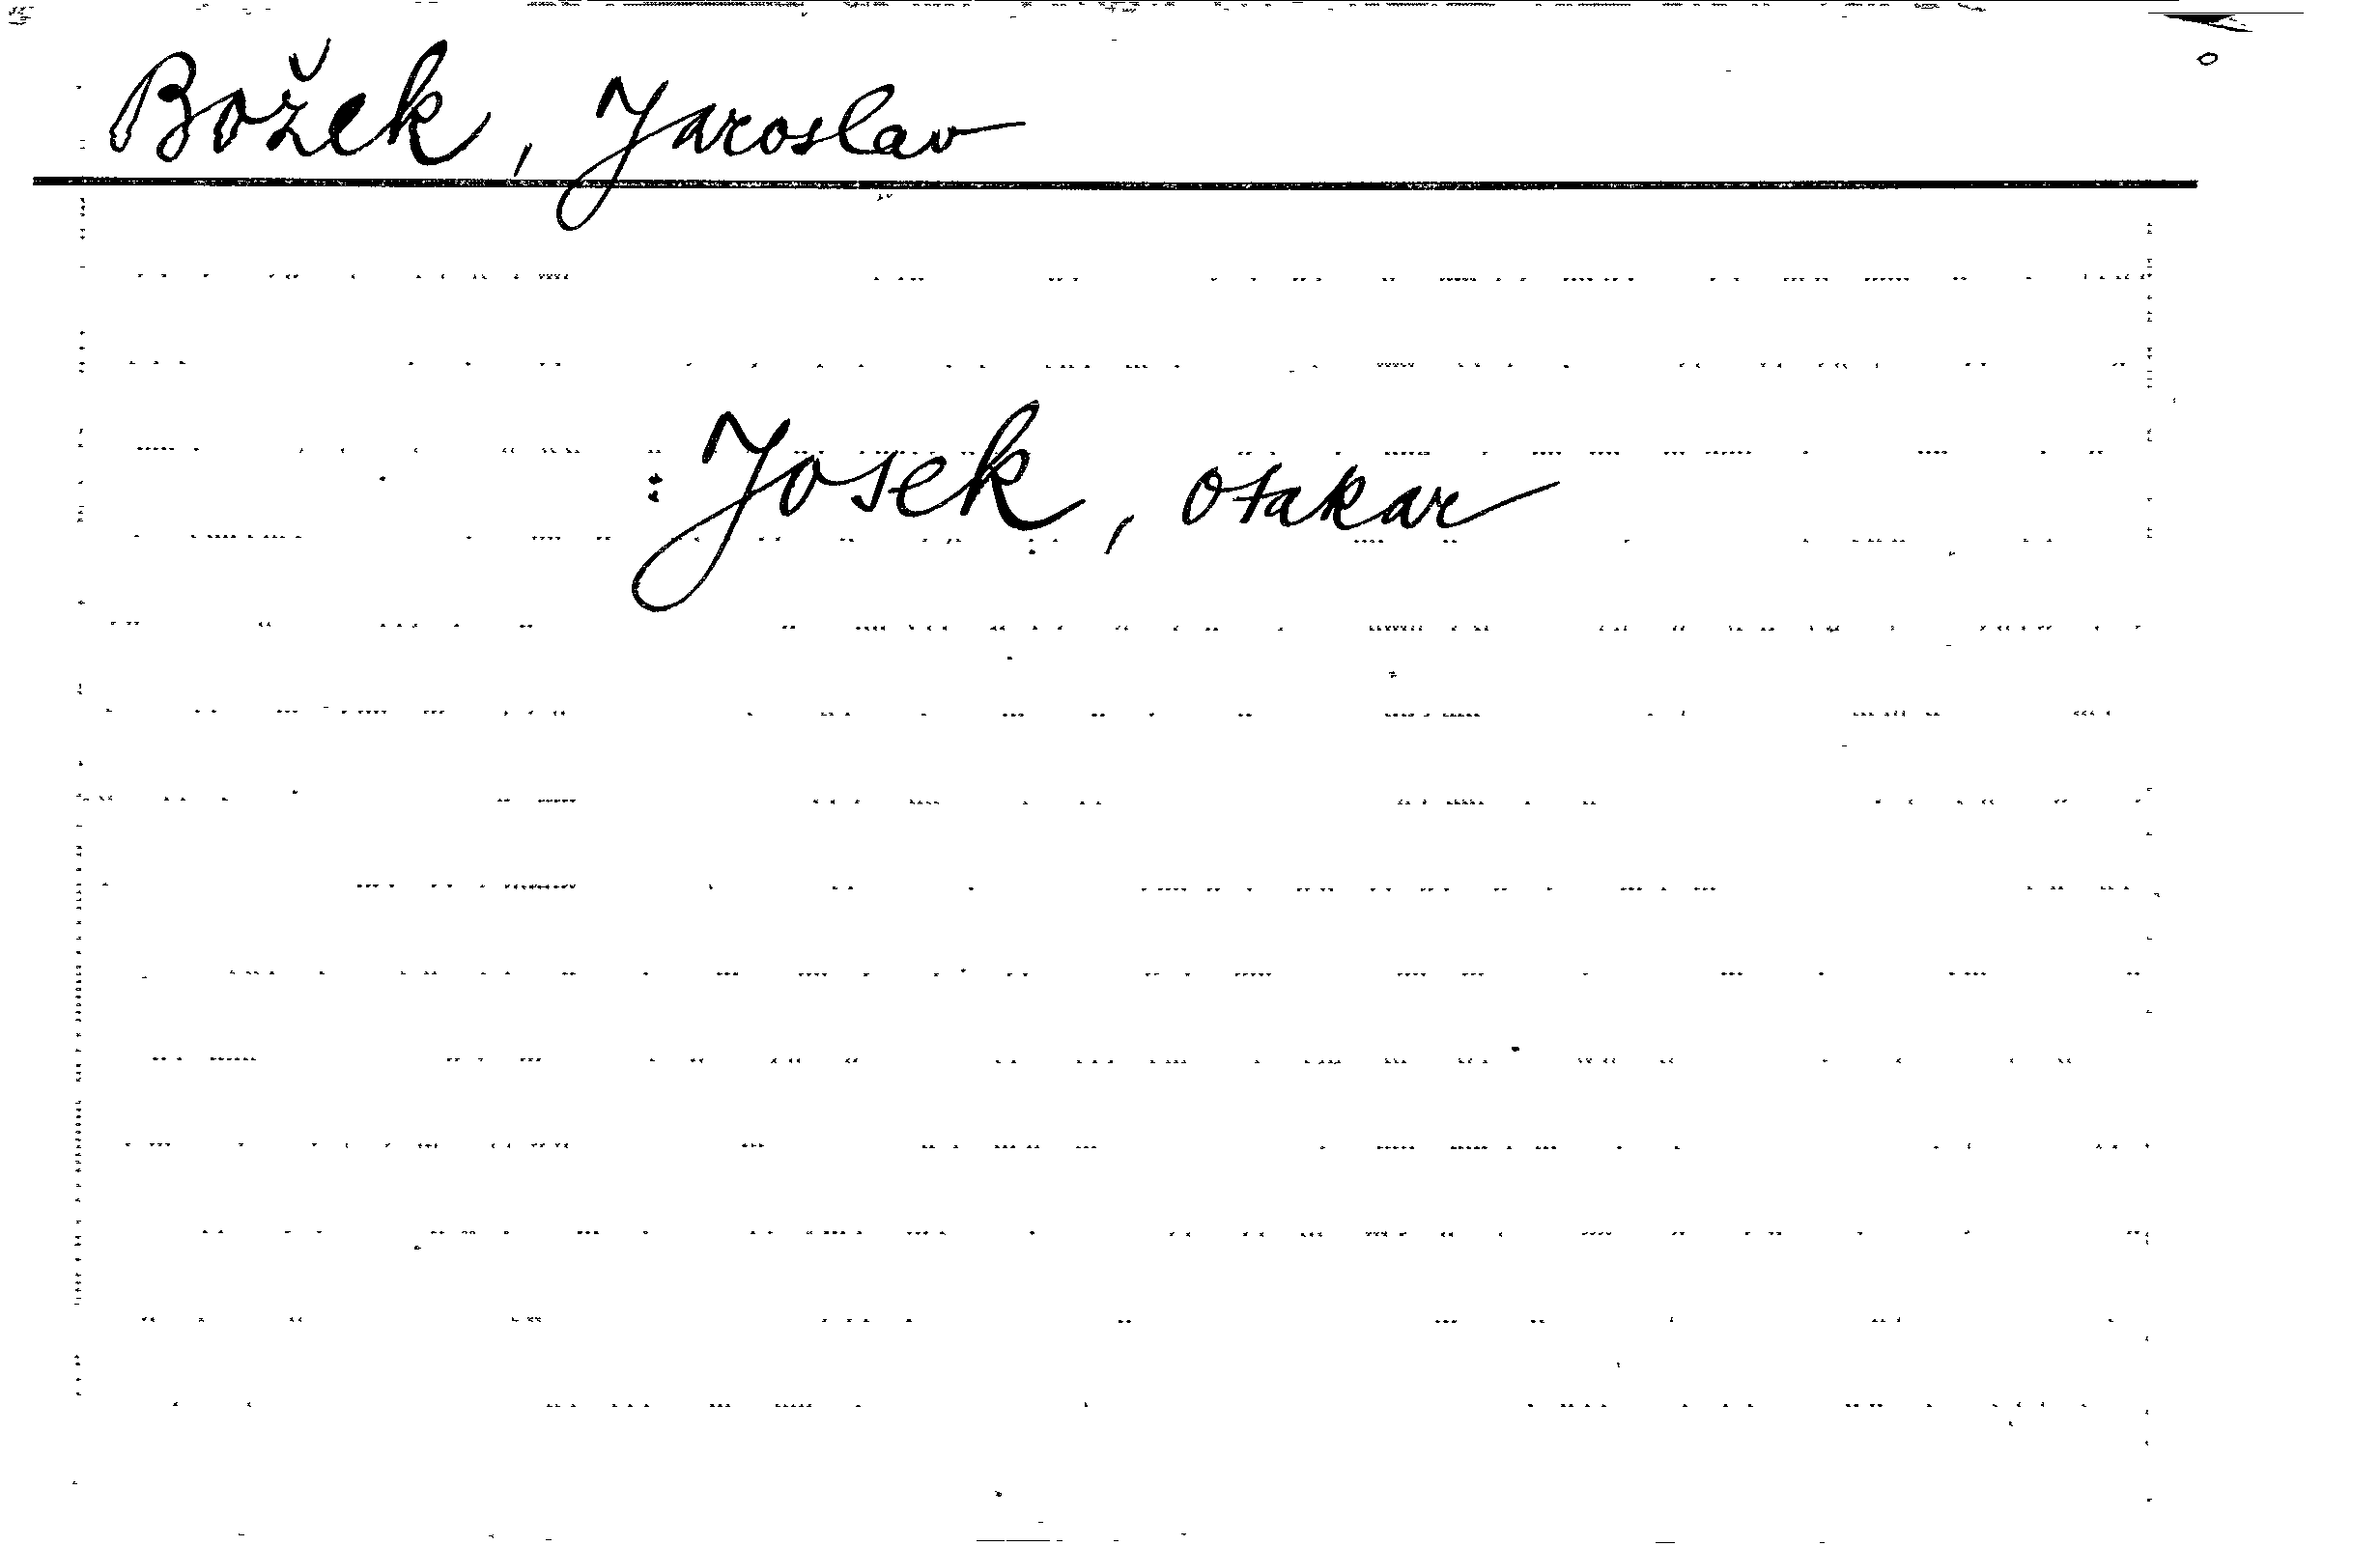 Božek, Jaroslav
: Josek, Otakar